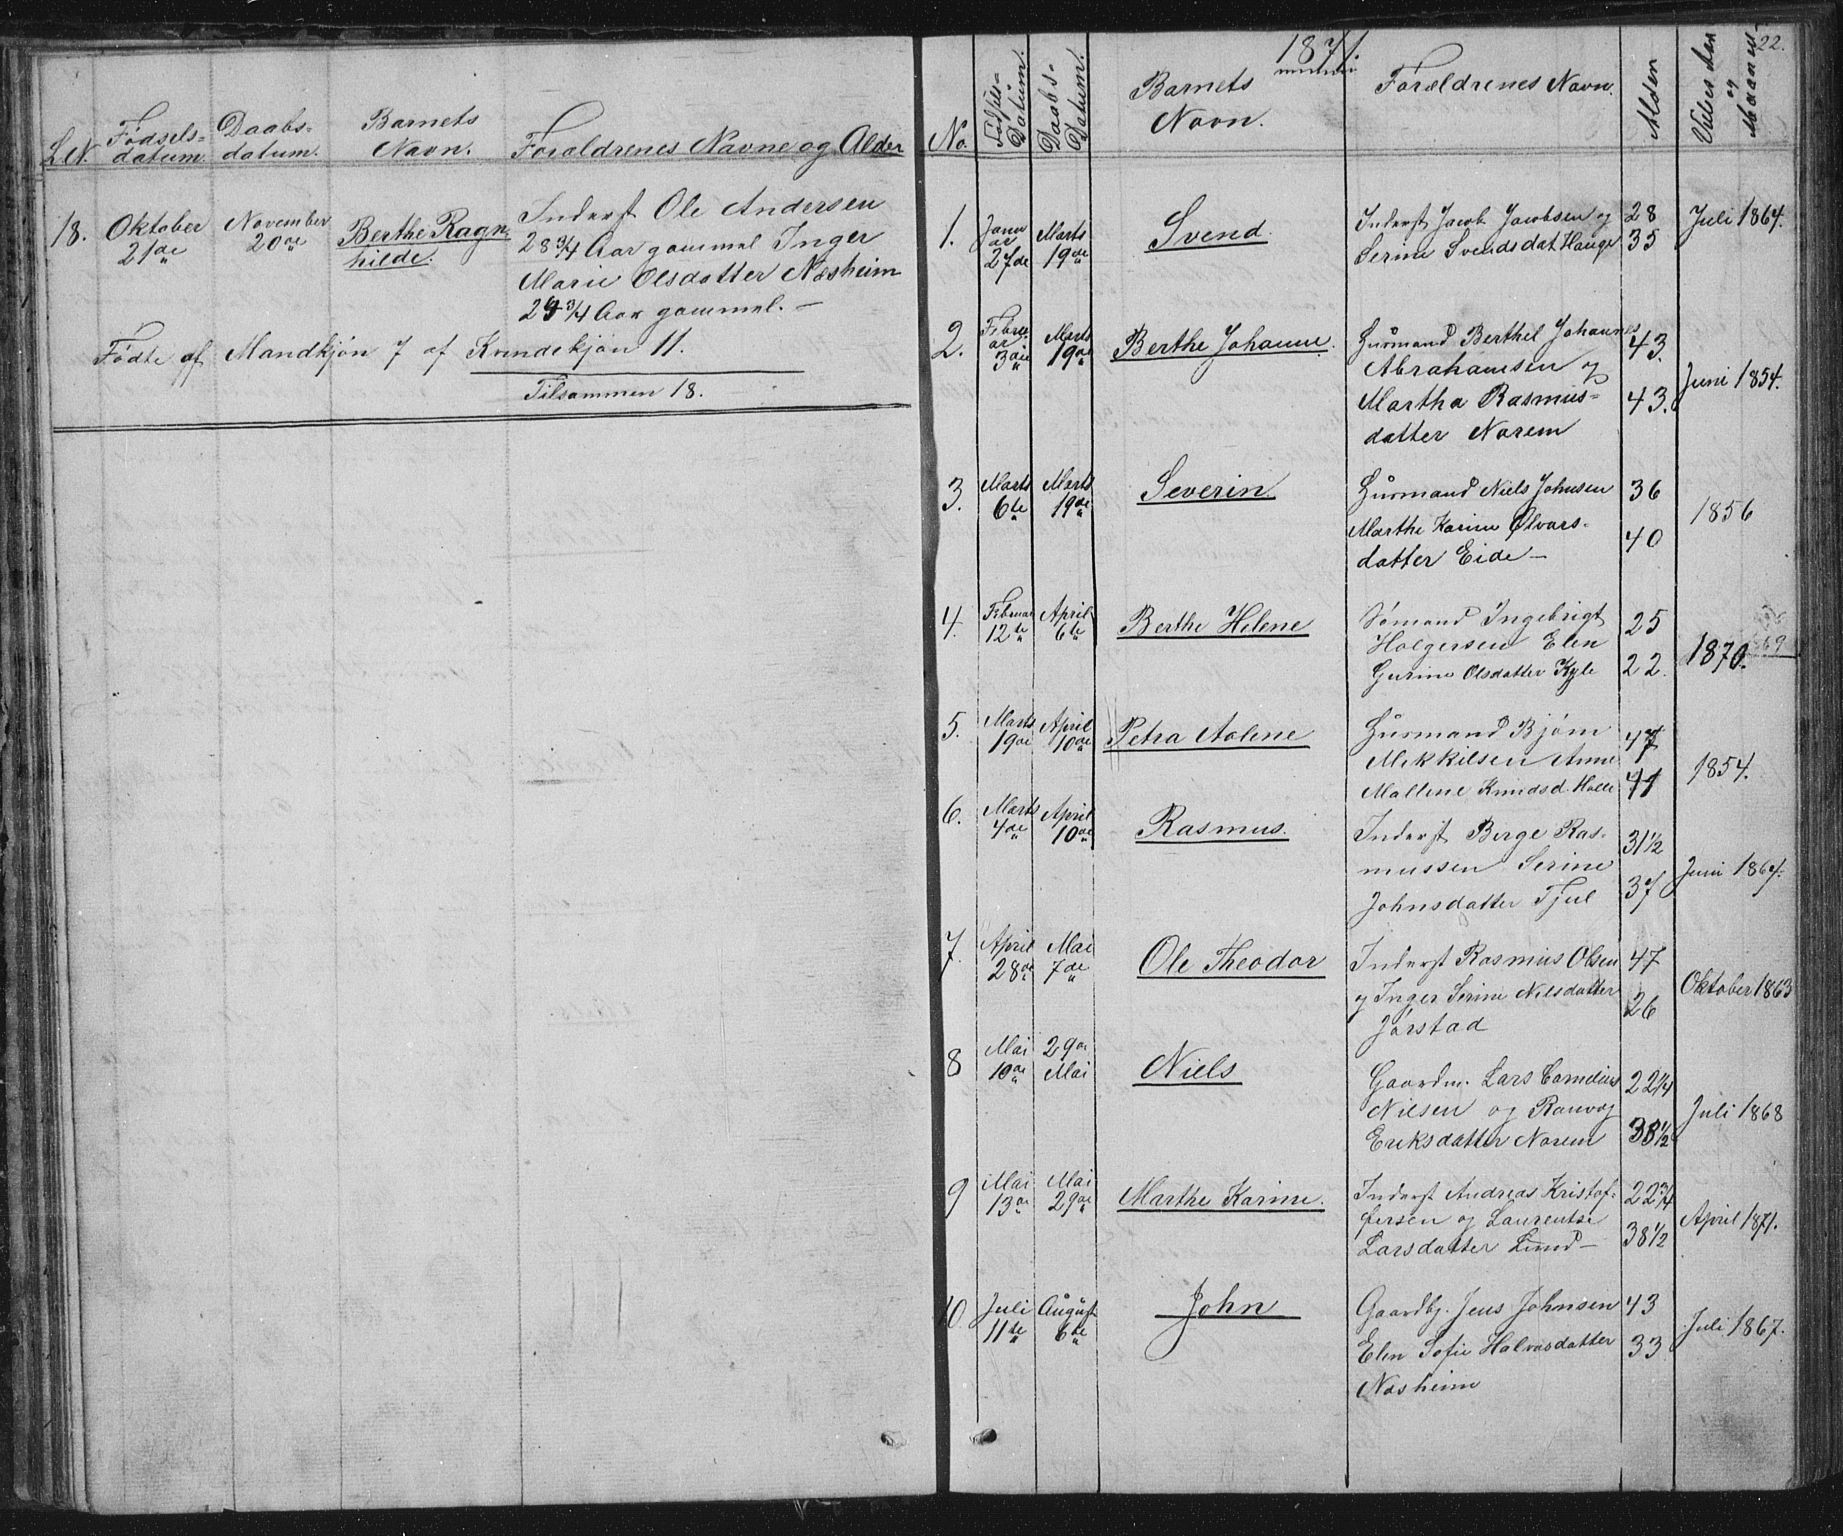 Fødsels-
datum.
Daabs-
datum.
Barnets
Navn.
Foraldrenes Navne og Alder
18.
Oktober
21de
November
20de
Berthe Ragn-
hilde.
Inderst Ole Andersen
28 3/4 Aar gammel Inger
Marie Olsdatter Næsheim
3/4 Aar gammel. —
Fødte af Mandkjøn 7 af Kvindekjøn 11.
Tilsammen 18.
22.
1871.
No.
Fødsels-
Datum.
Daabs-
Datum.
Barnets
Navn.
Foreldrenes Navn.
Alder
og
1.
Janu
ar
27de
Marts
19de
Svend.
Inderst Jacob Jacobsen og
Serine Svendsdat. Hauge
28
35
Juli 1864.
2.
Febru
ar
3die
Marts
19de
Berthe Johanne.
Husmand Berthel Johannes
Abrahamsen og
Martha Rasmus-
datter Norem
43.
43.
Juni 1854.
3.
Marts
6te
Marts
19de
Severin.
Husmand Niels Johnsen
Marthe Karine Olvars-
datter Eide —
36
40
1856
4.
Februar
12te
April
6te
Berthe Helene
Sømand Ingebrigt
Holgersen Elen
Gurine Olsdatter Kyle
25
22.
1870.
69
5.
Marts
19de
April
10de
Petra Aolene
Husmand Bjørn
Mekkilsen Anne
Mallene Knudsd. Halle
47
41
1854.
6.
Marts
4de
April
10de
Rasmus.
Inderst Berge Ras-
mussen Serine
Johnsdatter Tjul
31 1/2
37
Juni 1867.
7.
April
28de
Mai
7de
Ole Theodor
Inderst Rasmus Olsen
og Inger Serine Nilsdatter
Jørstad
47
26
Oktober 1863
8
Mai
10de
29de
Mai
Niels
Gaardm. Lars Cornelius
Nilsen og Ranvog
Eriksdatter Norem
22 1/4
38 1/2
Juli 1868
9
Mai
13de
Mai
29de
Marthe Karine.
Inderst Andreas Kristof-
fersen og Laurentse
Larsdatter Lund —
22 3/4
38 1/2
April 1871.
10.
Juli
11te
August
6te
John
Gaardbr. Jens Johnsen
Elen Sofie Halvorsdatter
Næsheim
43
33
Juli 1867.